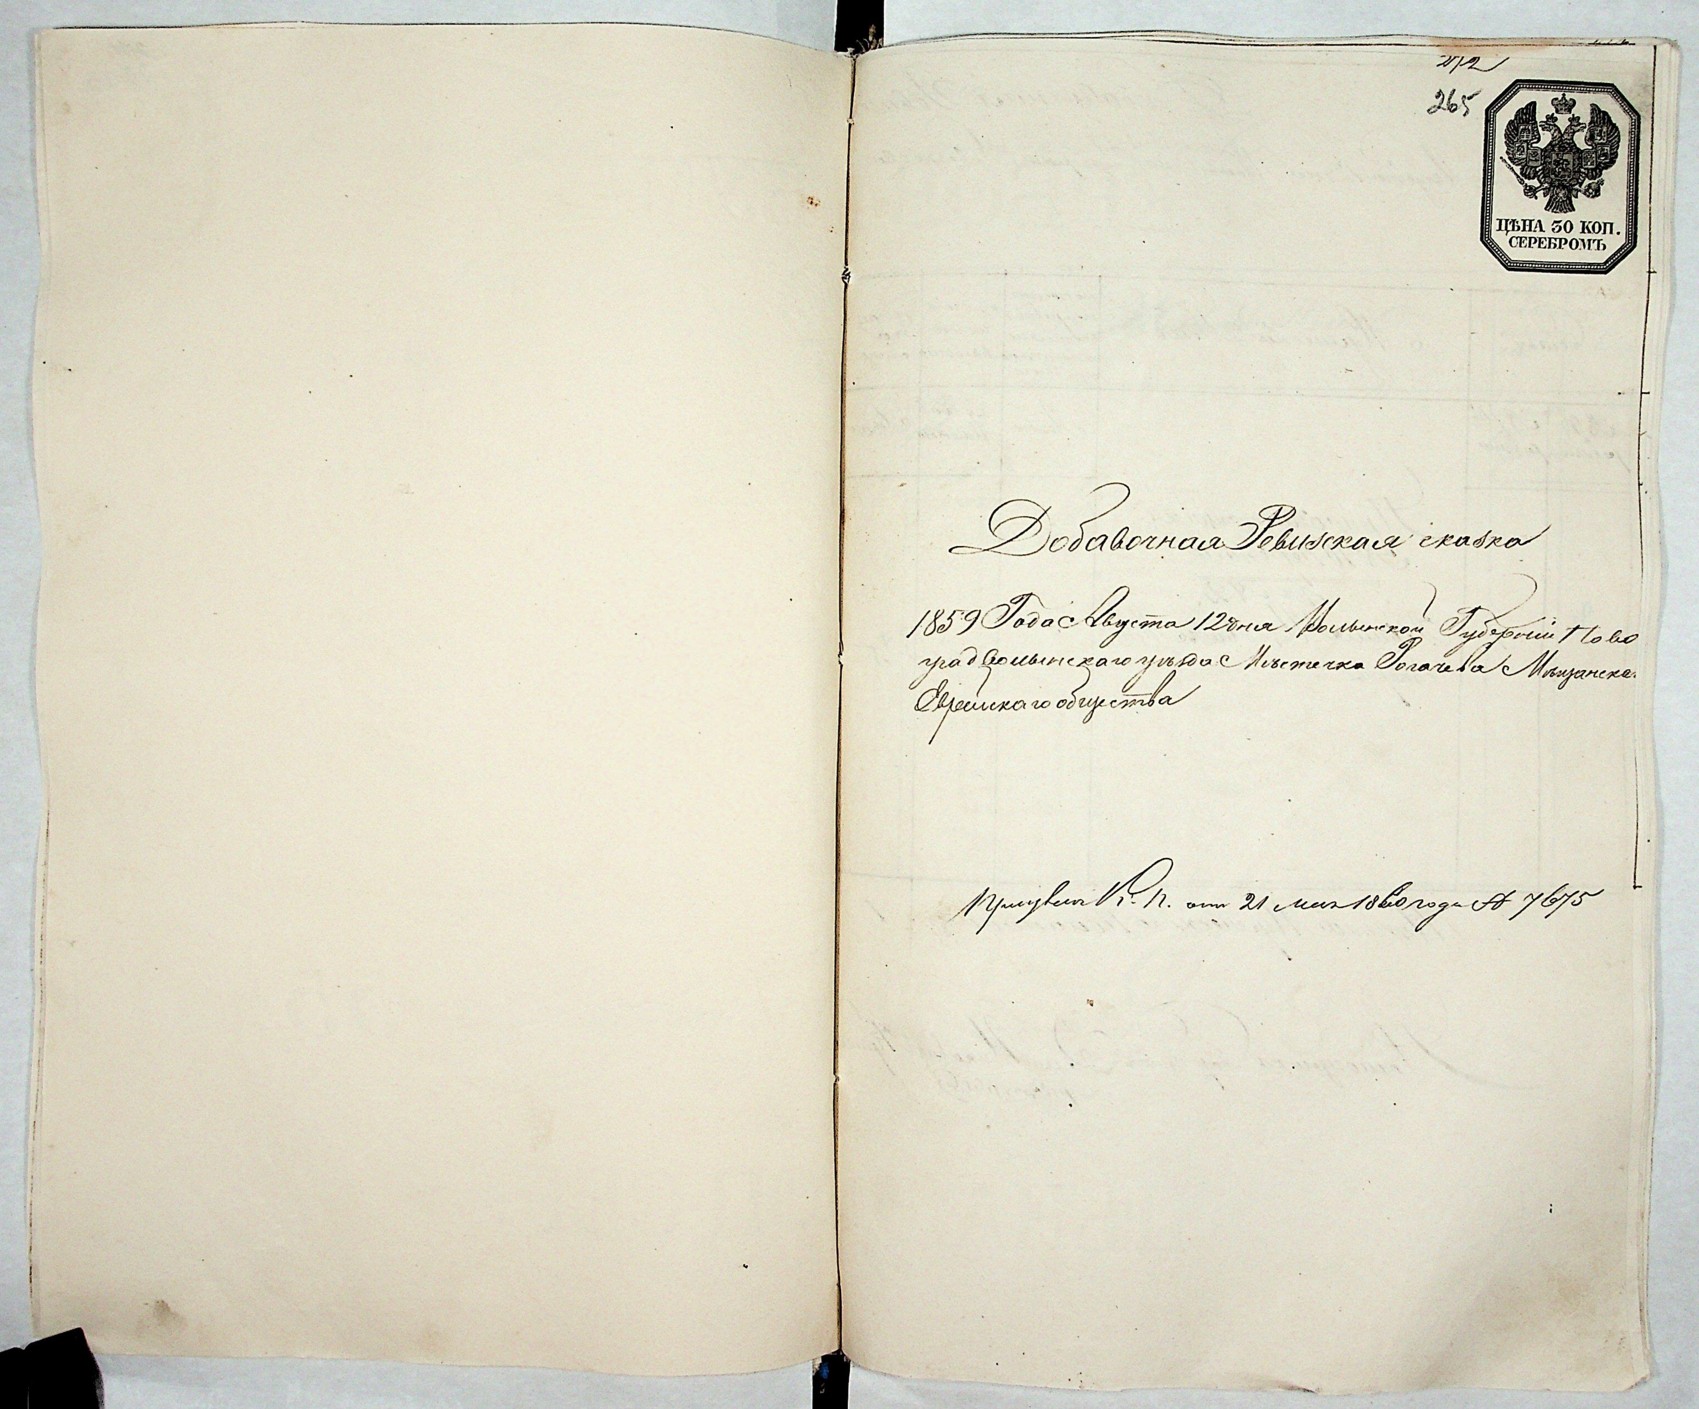 265
ЦѢНА 30 КОП.
СЕРЕБРОМЪ
Добавочная Ревизская сказка
1859 Года Августа 12 дня Волынской Губернии Ново
градволынскаго уѣзда Мѣстечка Рогачева Мѣщанска
Еврейскаго общества
К. П. отъ 21 мая 1860 года № 7675